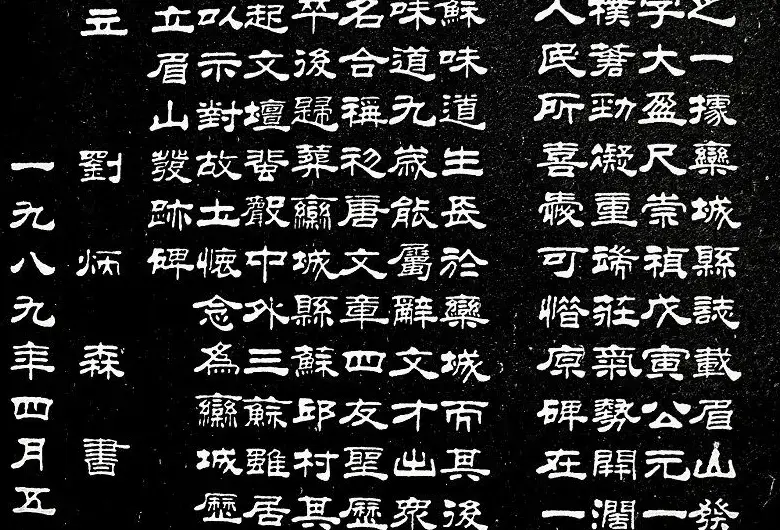 之一據欒城縣誌載眉山發
字大盈尺崇禎戊寅公元一
樸蒼勁凝重端莊氣勢開濶
人民所喜愛可惜原碑在一
蘇味道生長於欒城而其後
味道九歲能屬辭文才出眾
名合稱初唐文章四友聖歷
卒後歸葬欒城縣蘇邱村其
起文壇蜚聲中外三蘇雖居
以示對故土懷念為欒城歷
立眉山發跡碑
立 劉炳森書
一九八九年四月五